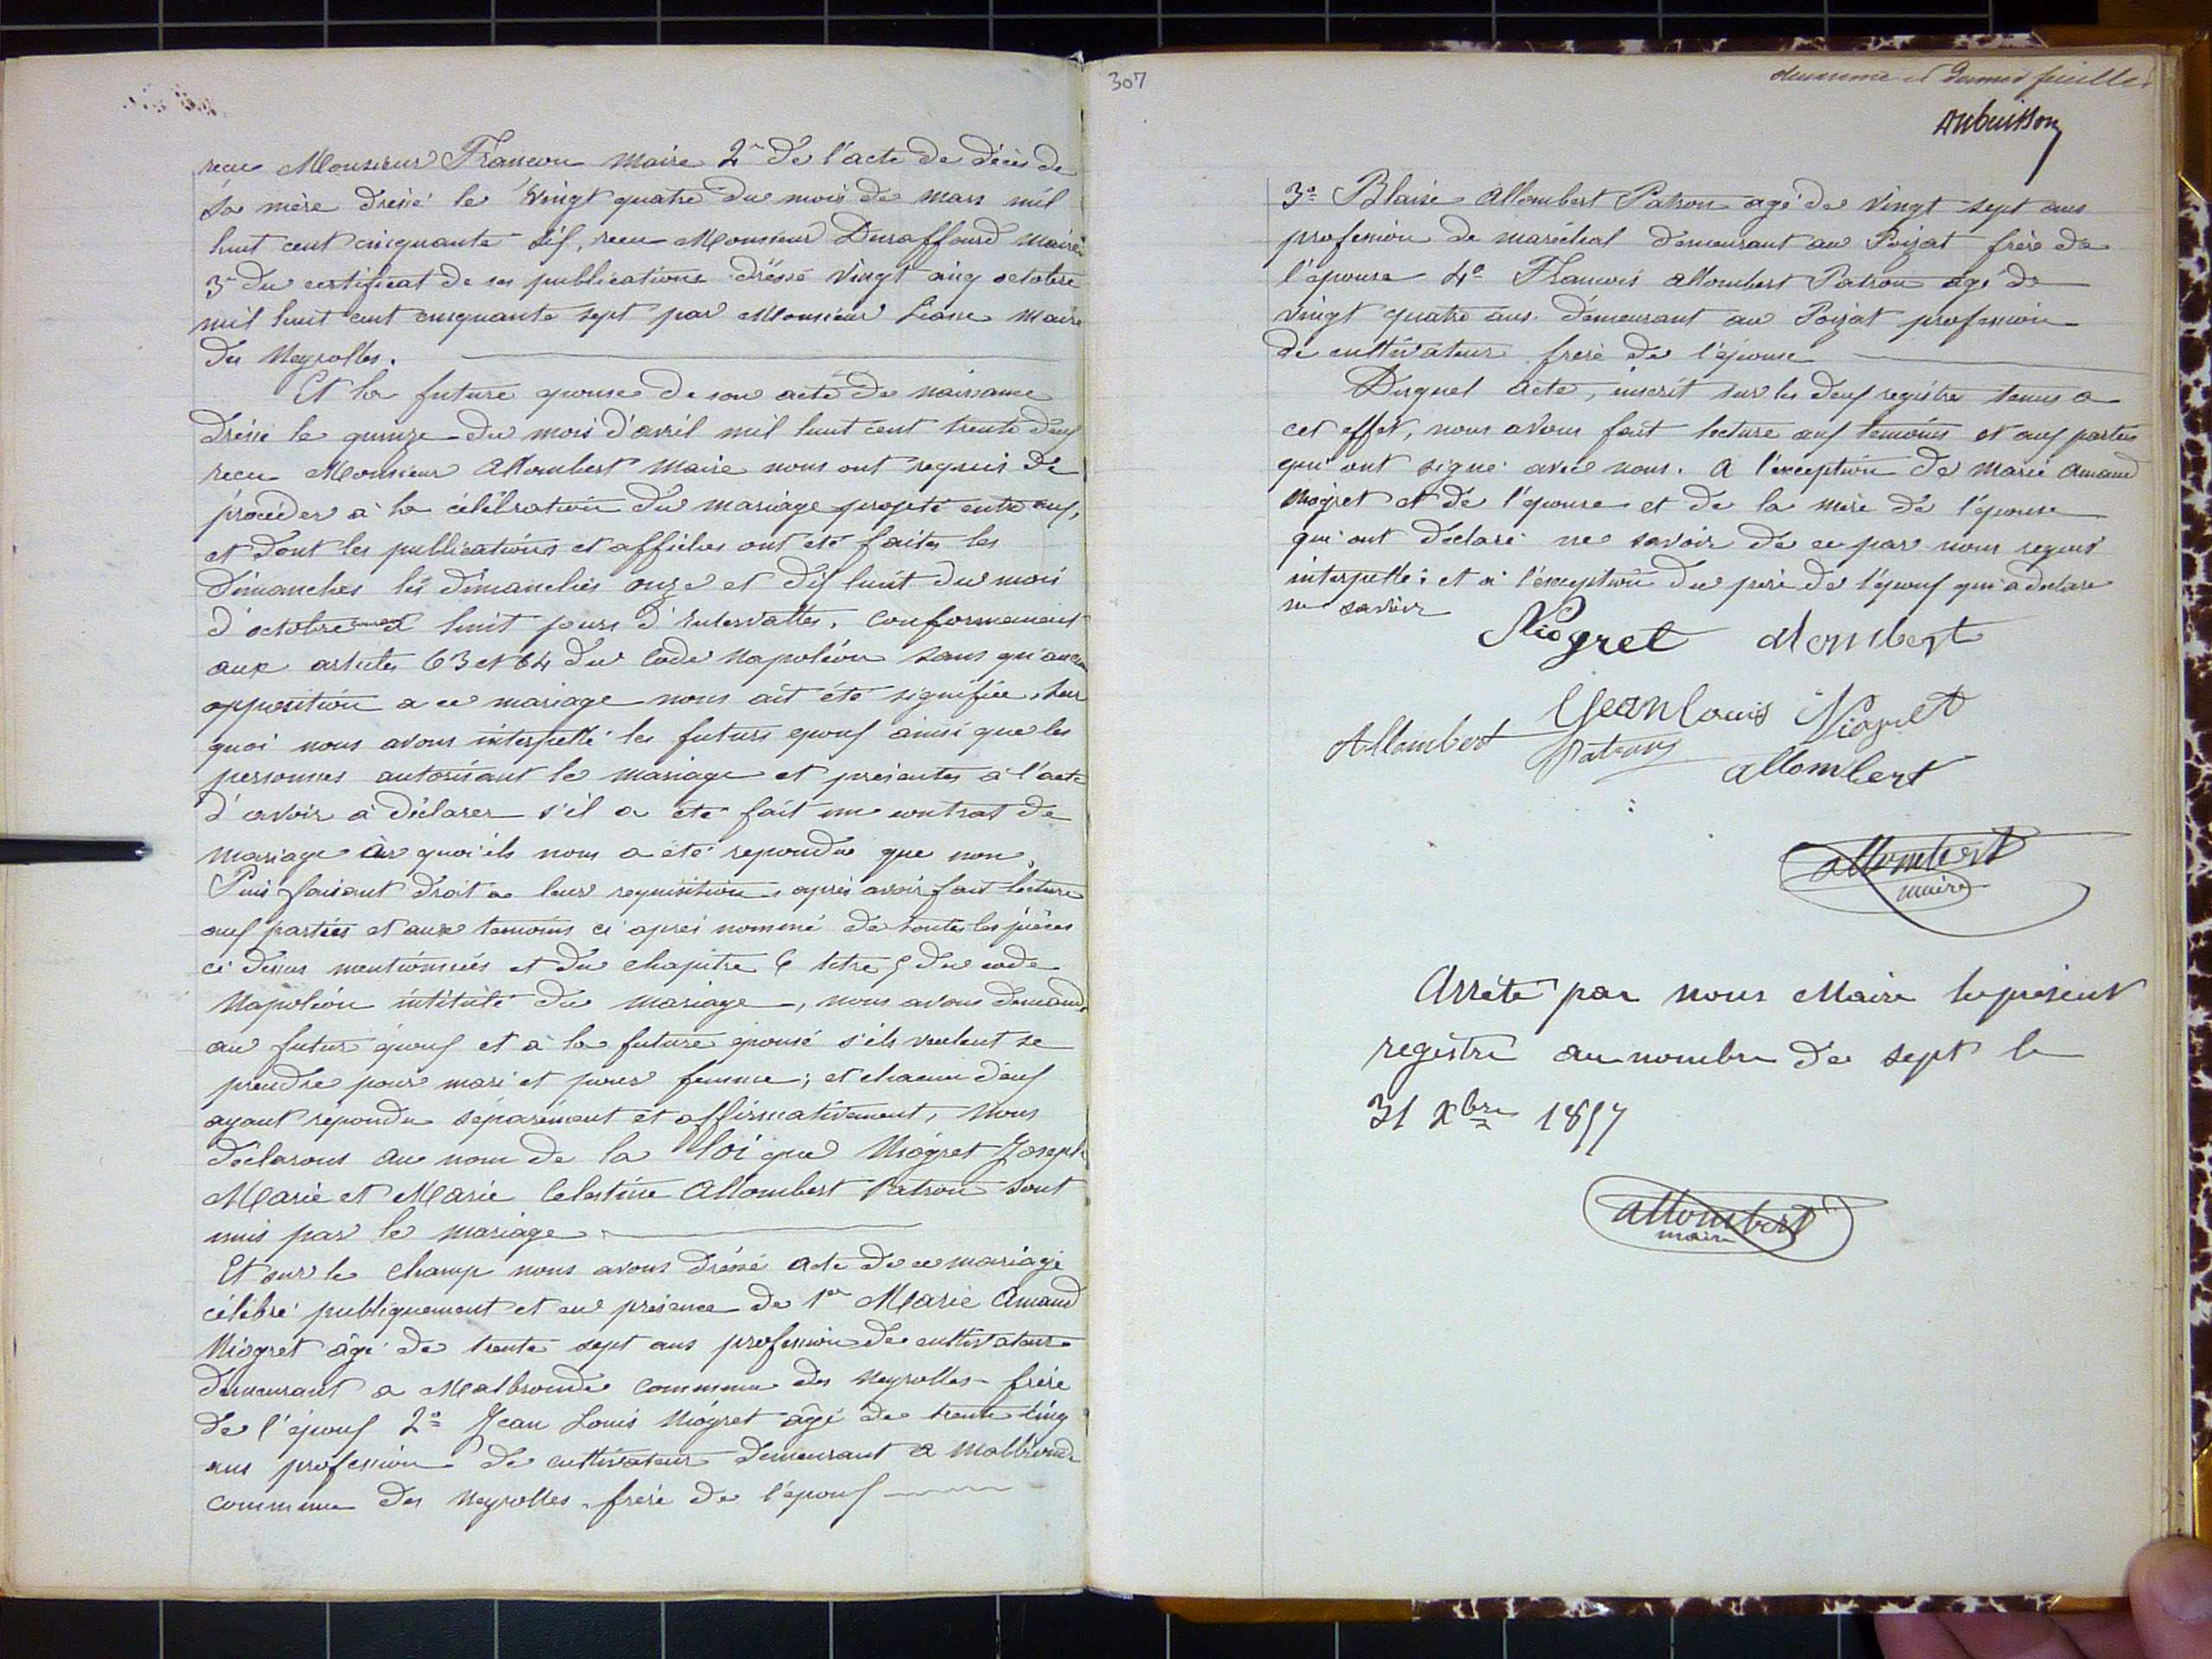 reçu Monsieur Francon Maire 2º de l'acte de décès de
sa mère dressé le Vingt quatre du mois de Mars mil
huit cent cinquante six, reçu Monsieur Duraffourd Maire
3º du certificat de ses publications dressé Vingt cinq octobre
mil huit cent cinquante sept par Monsieur Maire
des Neyrolles.
Et la future épouse de son acte de naissance
dressé le quinze du mois d'avril mil huit cent trente deux
reçu Monsieur Allombert Maire nous ont requis de
procéder à la célébration du mariage projeté entre eux,
et dont les publications et affiches ont été faites les
Dimanches les dimanches onze et dix huit du mois
d'octobre à huit jours d'intervalles, conformement
aux articles 63 et 64 du Code Napoléon sans qu'aucune
opposition a ce mariage nous ait été signifiée, sur
quoi nous avons interpellé les futurs époux ainsi que les
personnes autorisant le mariage et présentes à l'acte
d'avoir à déclarer s'il a été fait un contrat de
mariage à quoi ils nous a été repondu que non,
Puis faisant droit a leur requisition, après avoir fait lecture
aux parties et aux temoins ci après nommé de toutes les pièces
ci dessus mentionnées et du chapitre 6 titre 5 du code
Napoléon intitulé du mariage, nous avons demandé
au futur époux et à la future épouse s'ils veulent se
prendre pour mari et pour femme; et chacun d'eux
ayant repondu séparément et affirmativement, Nous
déclarons au nom de la loi que Niogret Joseph
Marie et Marie Celestine Allombert Patron sont
unis par le mariage
Et sur le champ nous avons dressé acte de ce mariage
célébré publiquement et en présence de 1er Marie Amand
Niogret âgé de trente sept ans profession de cultivateur
demeurant a Malbronde commune des Neyrolles frère
de l'époux 2º Jean Louis Niogret âgé de trente cinq
ans profession de cultivateur demeurant a Malbronde
commune des Neyrolles frère de l'époux
307
deuxieme et dernier feuillet
Aubuisson
3º Blaise Allombert Patron agé de Vingt sept ans
profession de maréchal demeurant au Poizat frère de
l'épouse 4º Francois Allombert Patron agé de
Vingt quatre ans demeurant au Poizat profession
de cultivateur frère de l'épouse
Duquel acte, inscrit sur les deux registre tenus a
cet effet, nous avons fait lecture aux temoins et aux parties
qui ont signé avec nous. A l'exception de Marie Amand
Niogret et de l'épouse et de la mère de l'épouse
qui ont declaré ne savoir de ce par nous requis
interpellé; et à l'exception du père de l'époux qui a déclare
ne savoir
Niogret Alombert
Jean Louis Niogret
Allombert Patron
allombert
allombert
maire
Arrêté par nous Maire le présent
registre au nombre de sept le
31 Xbre 1857
allombert
maire